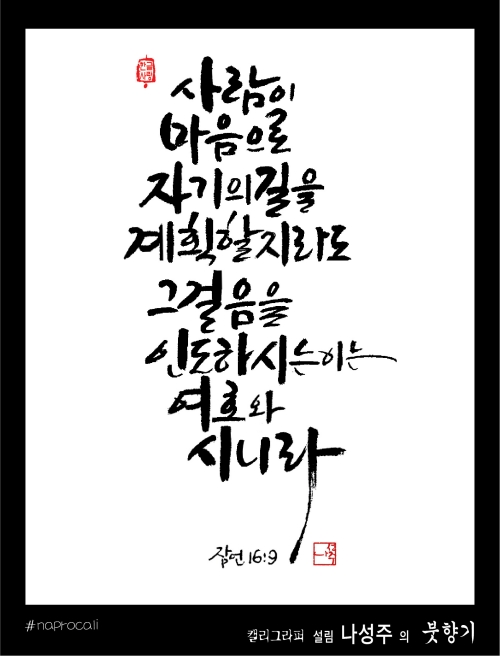 사람이
마음으로
자기의길을
계획할지라도
그걸음을
인도하시는이는
여호와
시니라
잠언 16:9
#naprocali
캘리그라피 설림 나성주 의 붓향기